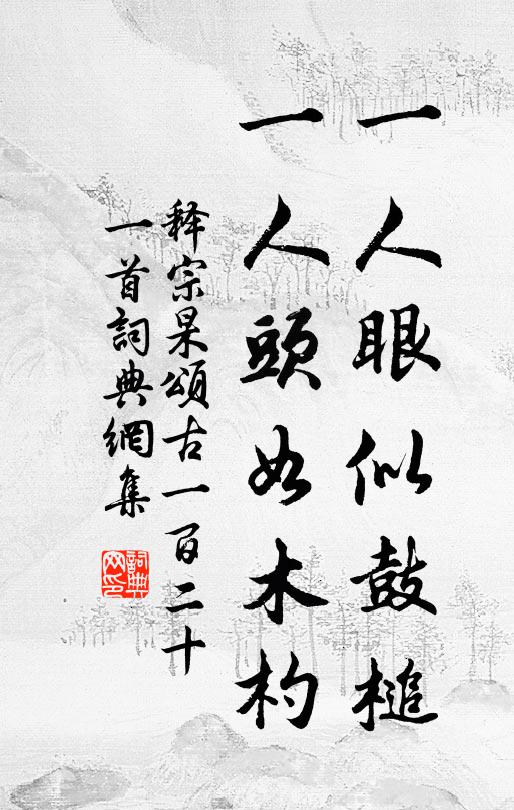 一人眼似鼓槌
一人頭如木杓
释宗杲頌古一百二十
一首詞典網集
詞典网印